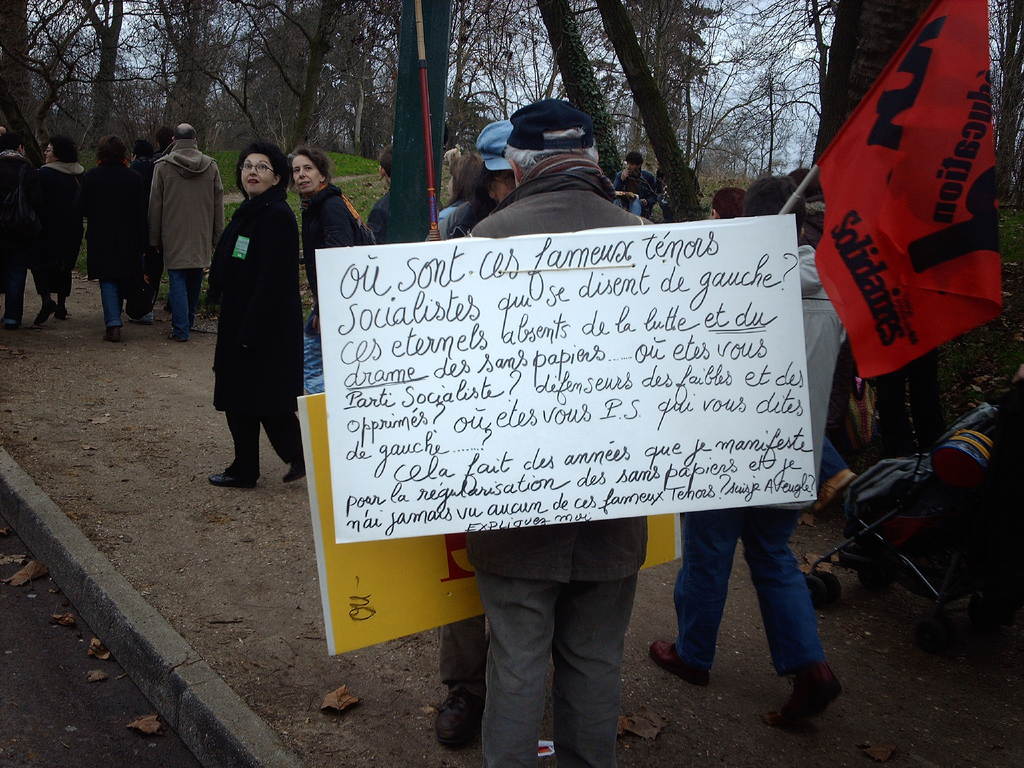 où sont ces fameux ténors
socialistes qui se disent de gauche?
ces eternels absents de la lutte et du
drame des sans papiers...... où etes vous
Parti Socialiste? défenseurs des faibles et des
opprimés? où etes vous P.S. qui vous dites
de gauche.......?
cela fait des années que je manifeste
pour la régularisation des sans papiers et je
n'ai jamais vu aucun de ces fameux Tenors? suis je Aveugle?
EXPLIQUEZ moi
éducation
Solidaires